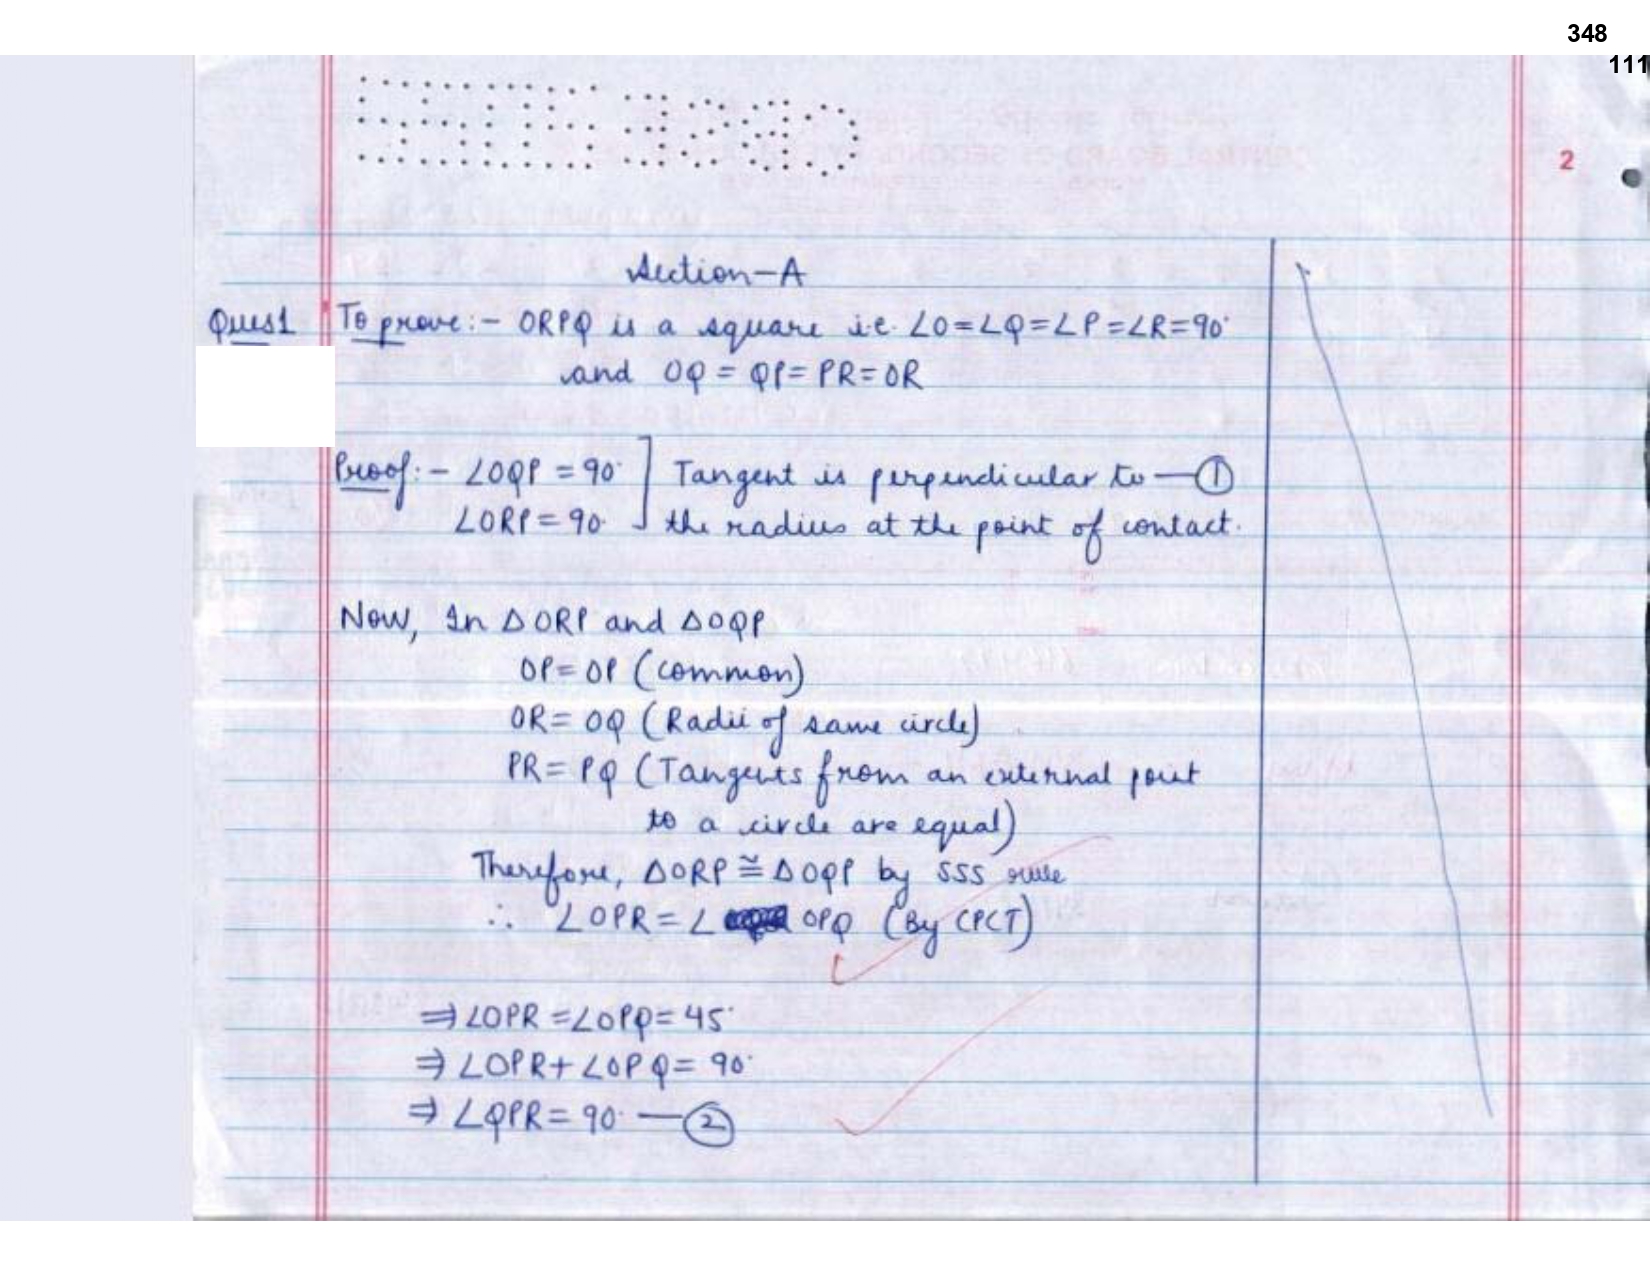 348
111
2
Section-A
Ques1 To prove:- ORPQ is a square i.e. ∠O=∠Q=∠P=∠R=90°
and OQ = QP= PR= OR
Proof:- ∠OQP = 90° ] Tangent is perpendicular to —①
∠ORP = 90° ] the radius at the point of contact.
Now, In △ORP and △OQP
OP= OP (common)
OR= OQ (Radii of same circle)
PR= PQ (Tangents from an external point
to a circle are equal)
Therefore, △ORP ≅ △OQP by SSS rule
∴ ∠OPR = ∠ OPQ (By CPCT)
⇒ ∠OPR =∠OPQ= 45°
⇒ ∠OPR+ ∠OPQ= 90°
⇒ ∠QPR= 90° —②